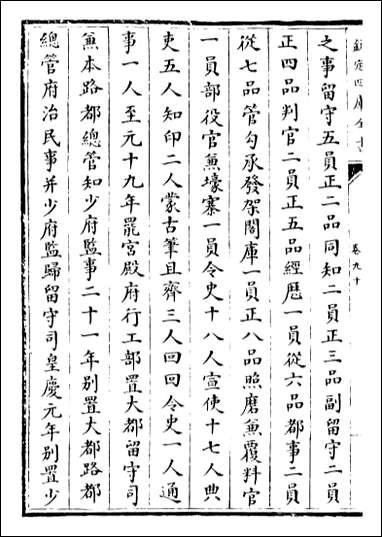 欽定四庫全書
卷九十
之事留守五員正二品同知二員正三品副留守二員
正四品判官二員正五品經歷一員從六品都事二員
從七品管勾承發架閣庫一員正八品照磨兼覆料官
一員部役官兼壕寨一員令史十八人宣使十七人典
吏五人知印二人蒙古筆且齊三人回回令史一人通
事一人至元十九年罷宮殿府行工部置大都留守司
兼本路都總管知少府監事二十一年别置大都路都
總管府治民事并少府監歸留守司皇慶元年别置少